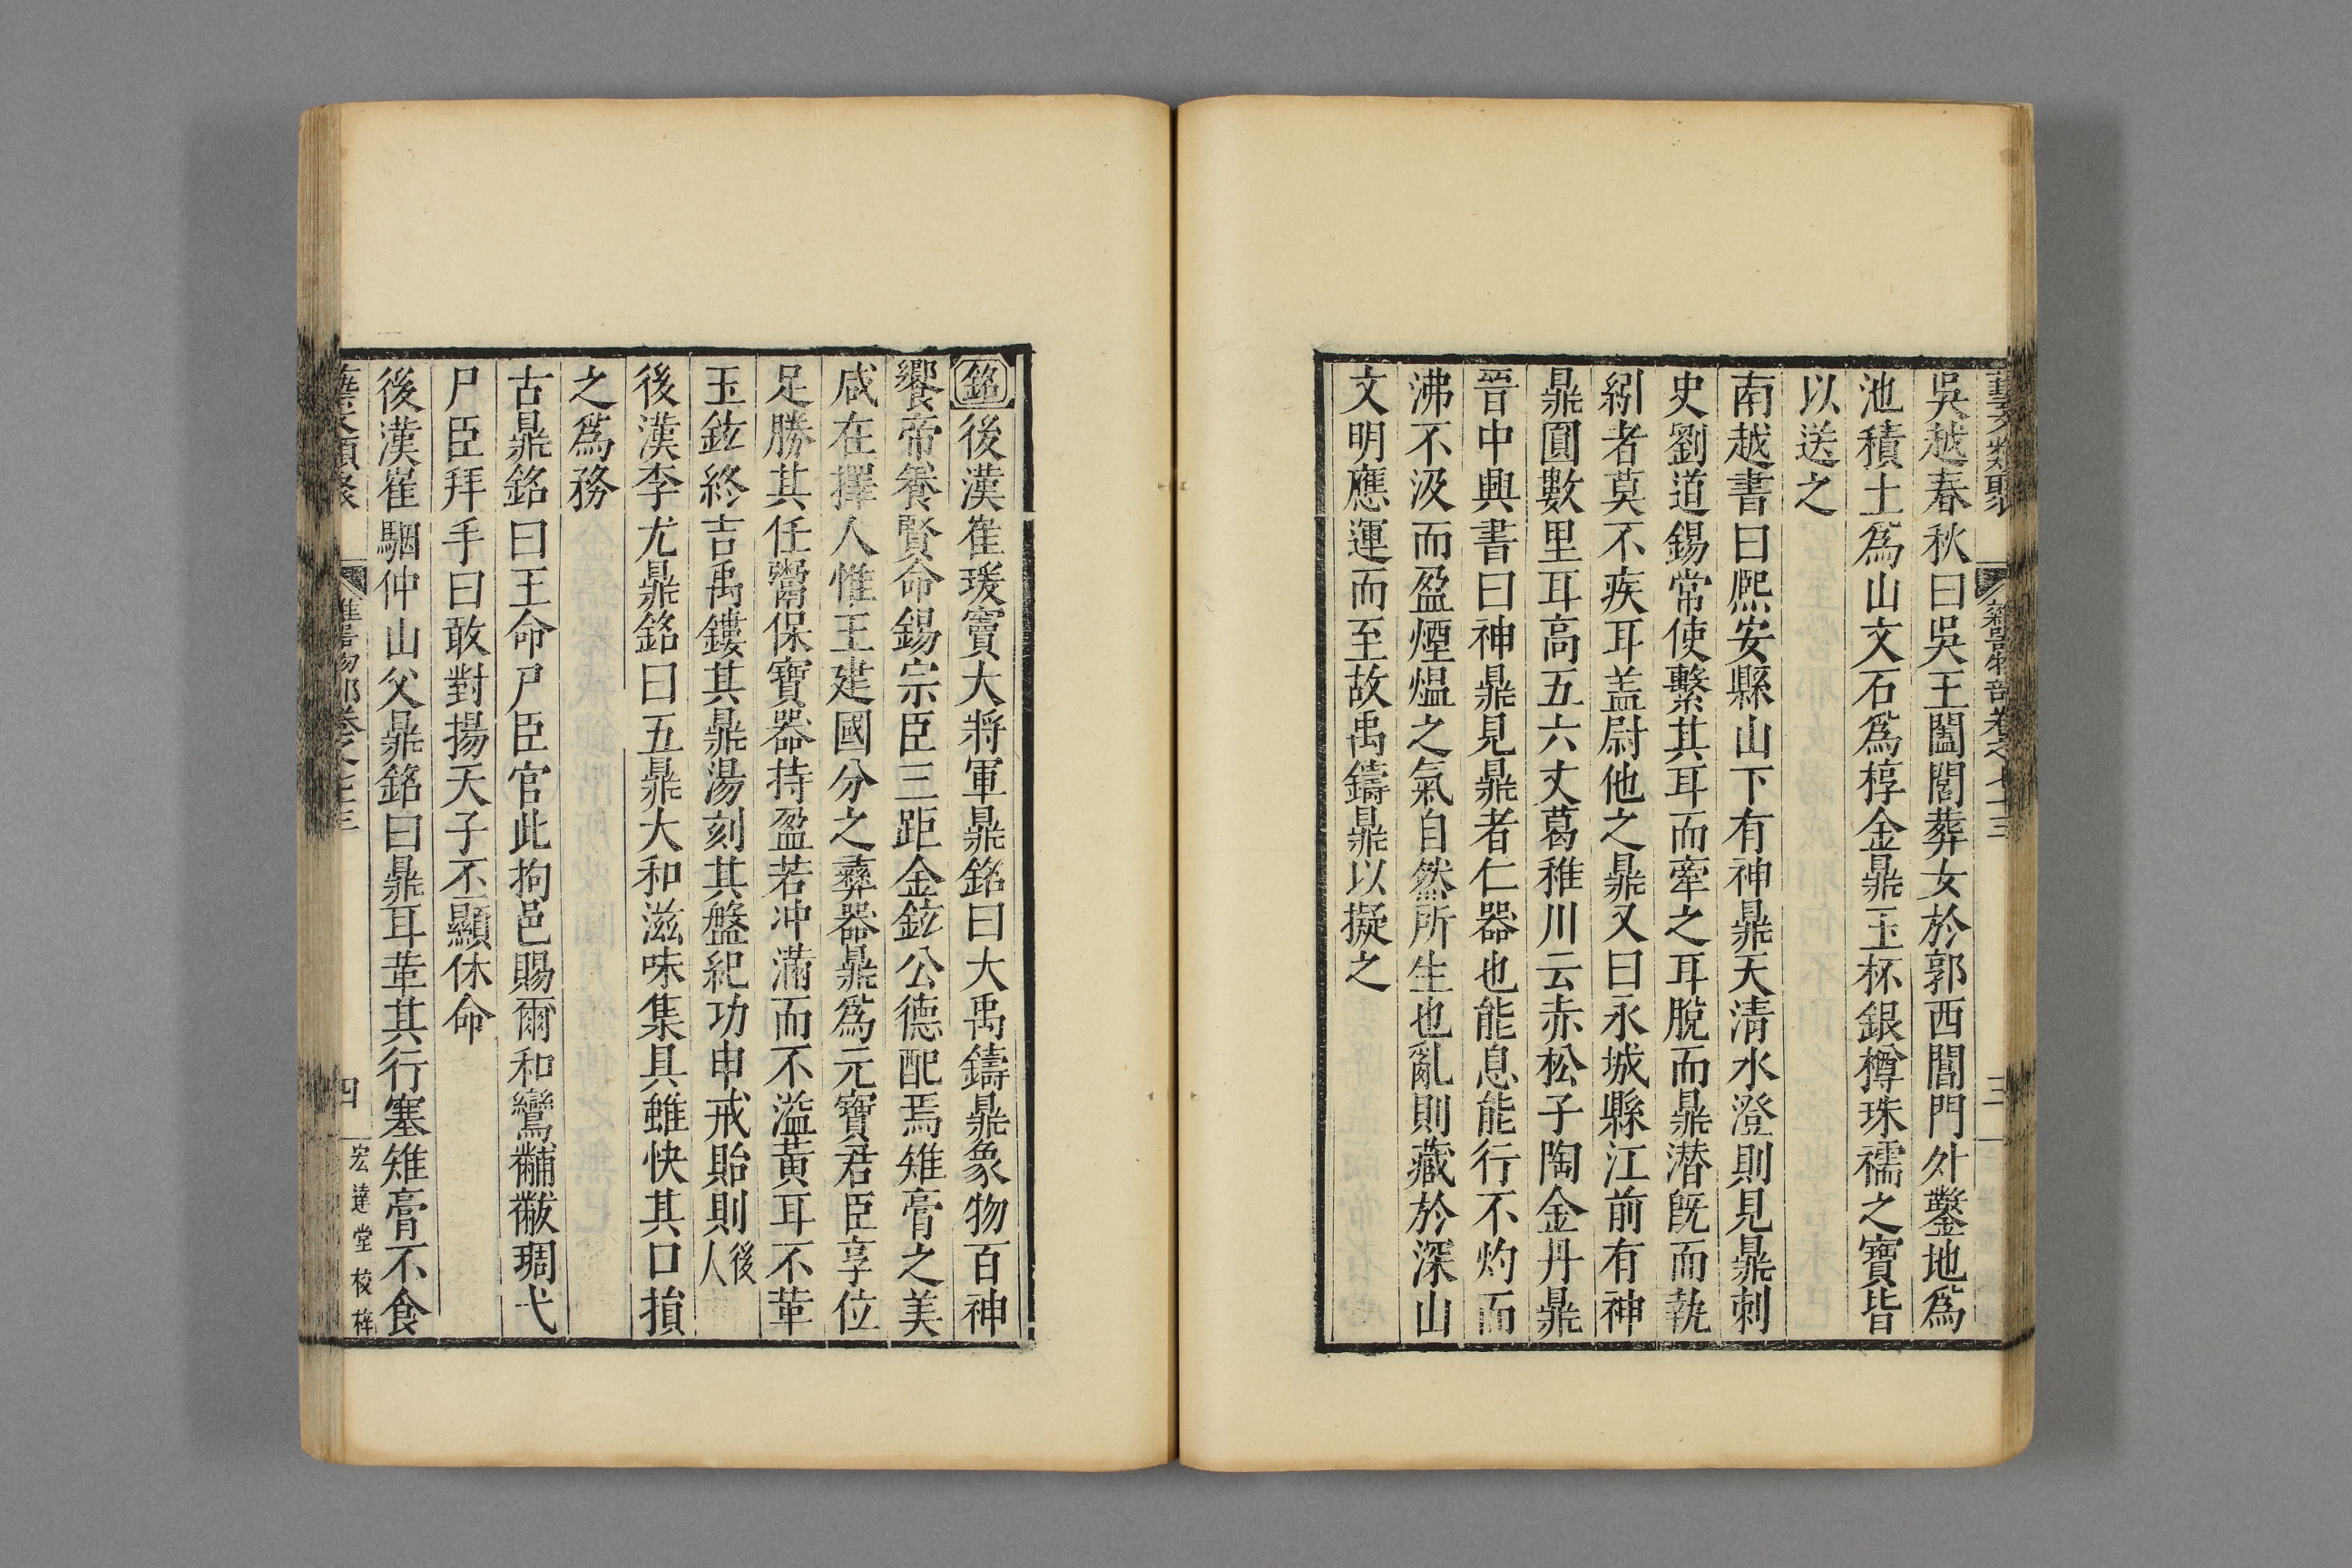 藝文類聚 雜器物部卷之七十三 三
吳越春秋曰吳王闔閭葬女於郭西閶門外鑿地為
池積土為山文石為椁金鼎玉杯銀樽珠襦之寶皆
以送之
南越書曰熈安縣山下有神鼎天清水澄則見鼎刺
史劉道錫常使繫其耳而牽之耳脫而鼎潜旣而執
紖者莫不疾耳盖尉他之鼎又曰永城縣江前有神
鼎圓數里耳高五六丈葛稚川云赤松子陶金丹鼎
晉中興書曰神鼎見鼎者仁器也能息能行不灼而
沸不汲而盈煙熅之氣自然所生也亂則藏於深山
文明應運而至故禹鑄鼎以擬之
銘後漢崔瑗竇大將軍鼎銘曰大禹鑄鼎象物百神
饗帝養賢命錫宗臣三距金鉉公德配焉雉膏之美
咸在擇人惟王建國分之彝器鼎為元寶君臣享位
足勝其任鬻保寶器持盈若冲滿而不溢黃耳不革
玉鉉終吉禹鏤其鼎湯刻其盤紀功申戒貽則後人
後漢李尤鼎銘曰五鼎大和滋味集具雖快其口損
之為務
古鼎銘曰王命尸臣官此拘邑賜爾和鸞黼黻琱弋
尸臣拜手曰敢對揚天子丕顯休命
後漢崔駰仲山父鼎銘曰鼎耳革其行塞雉膏不食
藝文類聚 雜器物部卷之七十三 四 宏達堂校梓